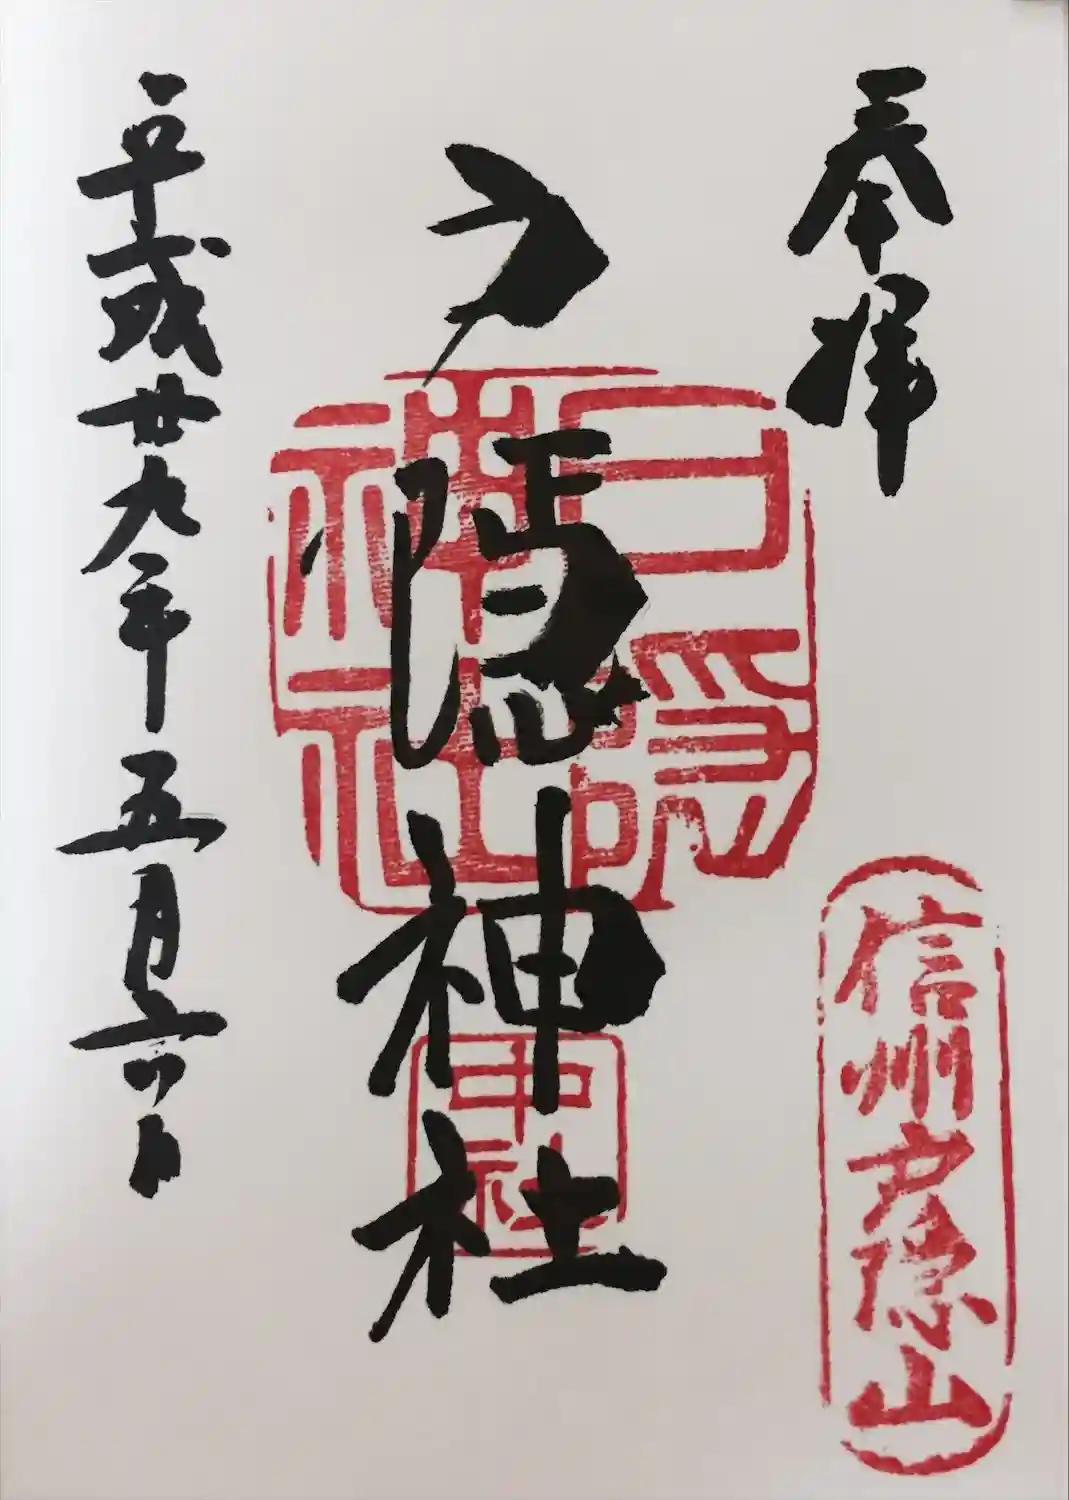 奉拝
信州戸隠山
戸隠神社
戸隠
神社
中社
平成廿九年五月六日